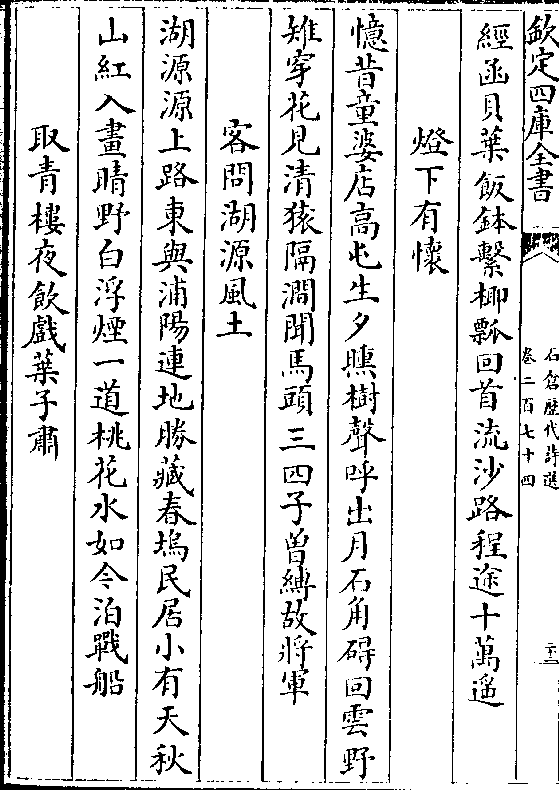 欽定四庫全書
石倉歷代詩選
卷二百七十四
二十三
經函貝葉飯鉢繫椰瓢回首流沙路程途十萬遙
燈下有懷
憶昔童婆店高屯生夕曛樹聲呼出月石角碍回雲野
雉穿花見清猿隔澗聞馬頭三四子曽縛故將軍
客問湖源風土
湖源源上路東與浦陽連地勝藏春塢民居小有天秋
山紅入畫晴野白浮煙一道桃花水如今泊戰船
取青樓夜飲戲葉子肅